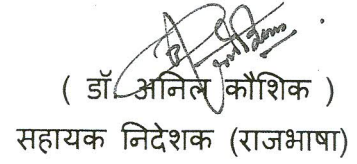 ( डॉ. अनिल कौशिक )
सहायक निदेशक (राजभाषा)